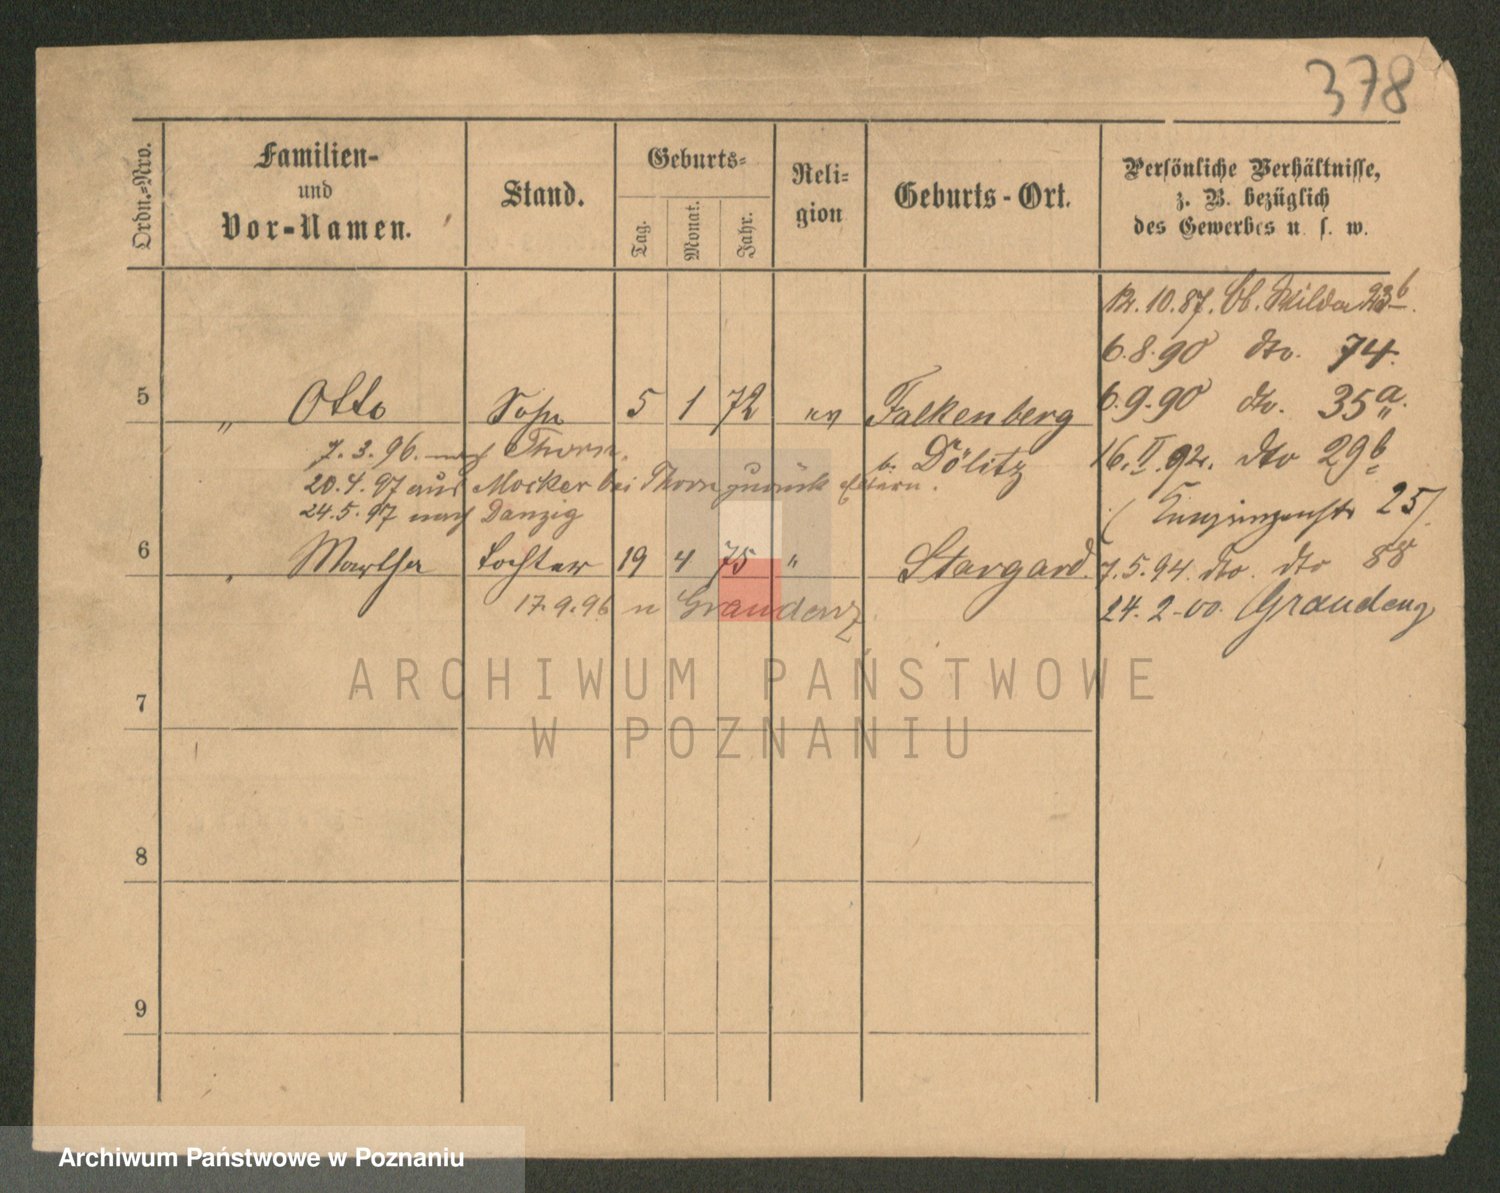 378
Ordn.-Nro.
Familien-
und
Vor-Namen.
Stand.
Geburts-
Tag.
Monat.
Jahr.
Reli-
gion
Geburts-Ort.
Persönliche Verhältnisse,
z. B. bezüglich
des Gewerbes u. s. w.
12.10.87. Ob. Wilda 23b
6.8.90 dto. 74.
5 " Otto Sohn 5 1 72 ev Falkenberg
6.9.90 dto. 35a.
7.3.96. nach Thorn.
b. Dölitz
16.II.92. dto 29b
20.4.97 aus Mocker bei Thorn zurück Eltern.
24.5.97 nach Danzig
25/
6 " Martha Tochter 19 4 75 " Stargard.
7.5.94. dto. dto 88
17.9.96 n Graudenz
24.2.00. Graudenz
7
8
9
ARCHIWUM PAŃSTWOWE
W POZNANIU
Archiwum Państwowe w Poznaniu